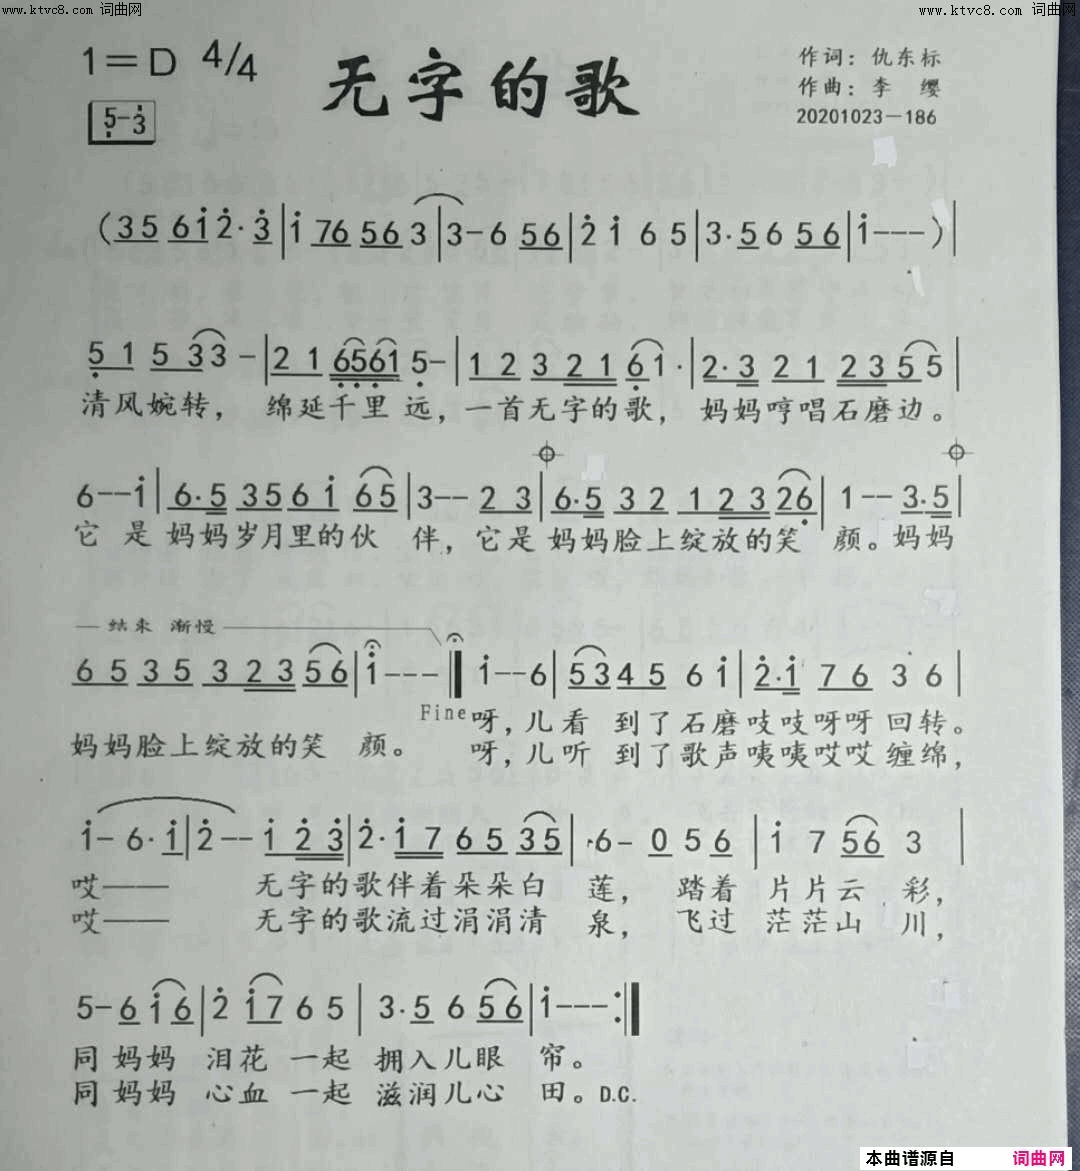 www.ktvc8.com 词曲网 www.ktvc8.com 词曲网
1=D 4/4 无字的歌 作词：仇东标
5-3 作曲：李 缨
20201023-186
(35 61̇2̇·3̇|1̇ 76 56 3|3-6 56|2̇ 1̇ 6 5|3·56 56|1̇---)|
5̣1 5 33 -|21 6̣5̣6̣1 5̣-|12 3 21 6̣1·|2·3 21 2355|
清风婉转， 绵延千里 远，一首无字的歌， 妈妈哼唱石磨边。
6--1̇|6·5 3561̇ 65|3-- 23|6·5 32 123 26̣|1-- 3·5|
它 是 妈妈岁月里的伙 伴，它是 妈妈脸上绽放的笑 颜。妈妈
结束 渐慢
65 35 3 23 56|1̇---‖ 1̇--6|5345 6 1̇|2̇·1̇ 76 3 6|
Fine 呀，儿看 到了石磨吱吱呀呀 回转。
妈妈脸上绽放的笑 颜。 呀，儿听 到了歌声咦咦哎哎 缠绵，
1̇- 6·1̇|2̇-- 1̇2̇3̇|2̇·1̇7 65 35|6- 0 5 6|1̇ 7 56 3|
哎—— 无字的歌伴着朵朵白 莲， 踏着 片片云 彩，
哎—— 无字的歌流过涓涓清 泉， 飞过 茫茫山 川，
5-6 1̇6|2̇ 1̇7 6 5|3·5 6 56|1̇---:‖
同 妈妈 泪花 一起 拥入儿眼 帘。
同 妈妈 心血 一起 滋润儿心 田。D.C.
本曲谱源自 词曲网